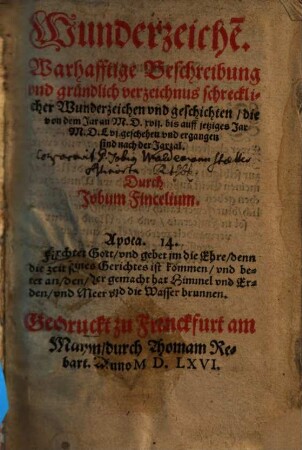 Wunderzeichē.
Warhafftige Beschreibung
vnd gründlich verzeichnus schreckli-
cher Wunderzeichen vnd geschichten / die
von dem Jar an M. D. xvii. bis auff jetziges Jar
M. D. Lvj. geschehen vnd ergangen
sind nach der Jarzal.
Durch
Jobum Fincelium.
Apoca. 14.
Fürchtet Gott / vnd gebet im die Ehre / denn
die zeit seines Gerichtes ist kommen / vnd be-
tet an / den / der gemacht hat Himmel vnd Er-
den / vnd Meer vnd die Wasser brunnen.
Gedruckt zu Franckfurt am
Mayn / durch Thomam Re-
bart. Anno M D. LXVI.